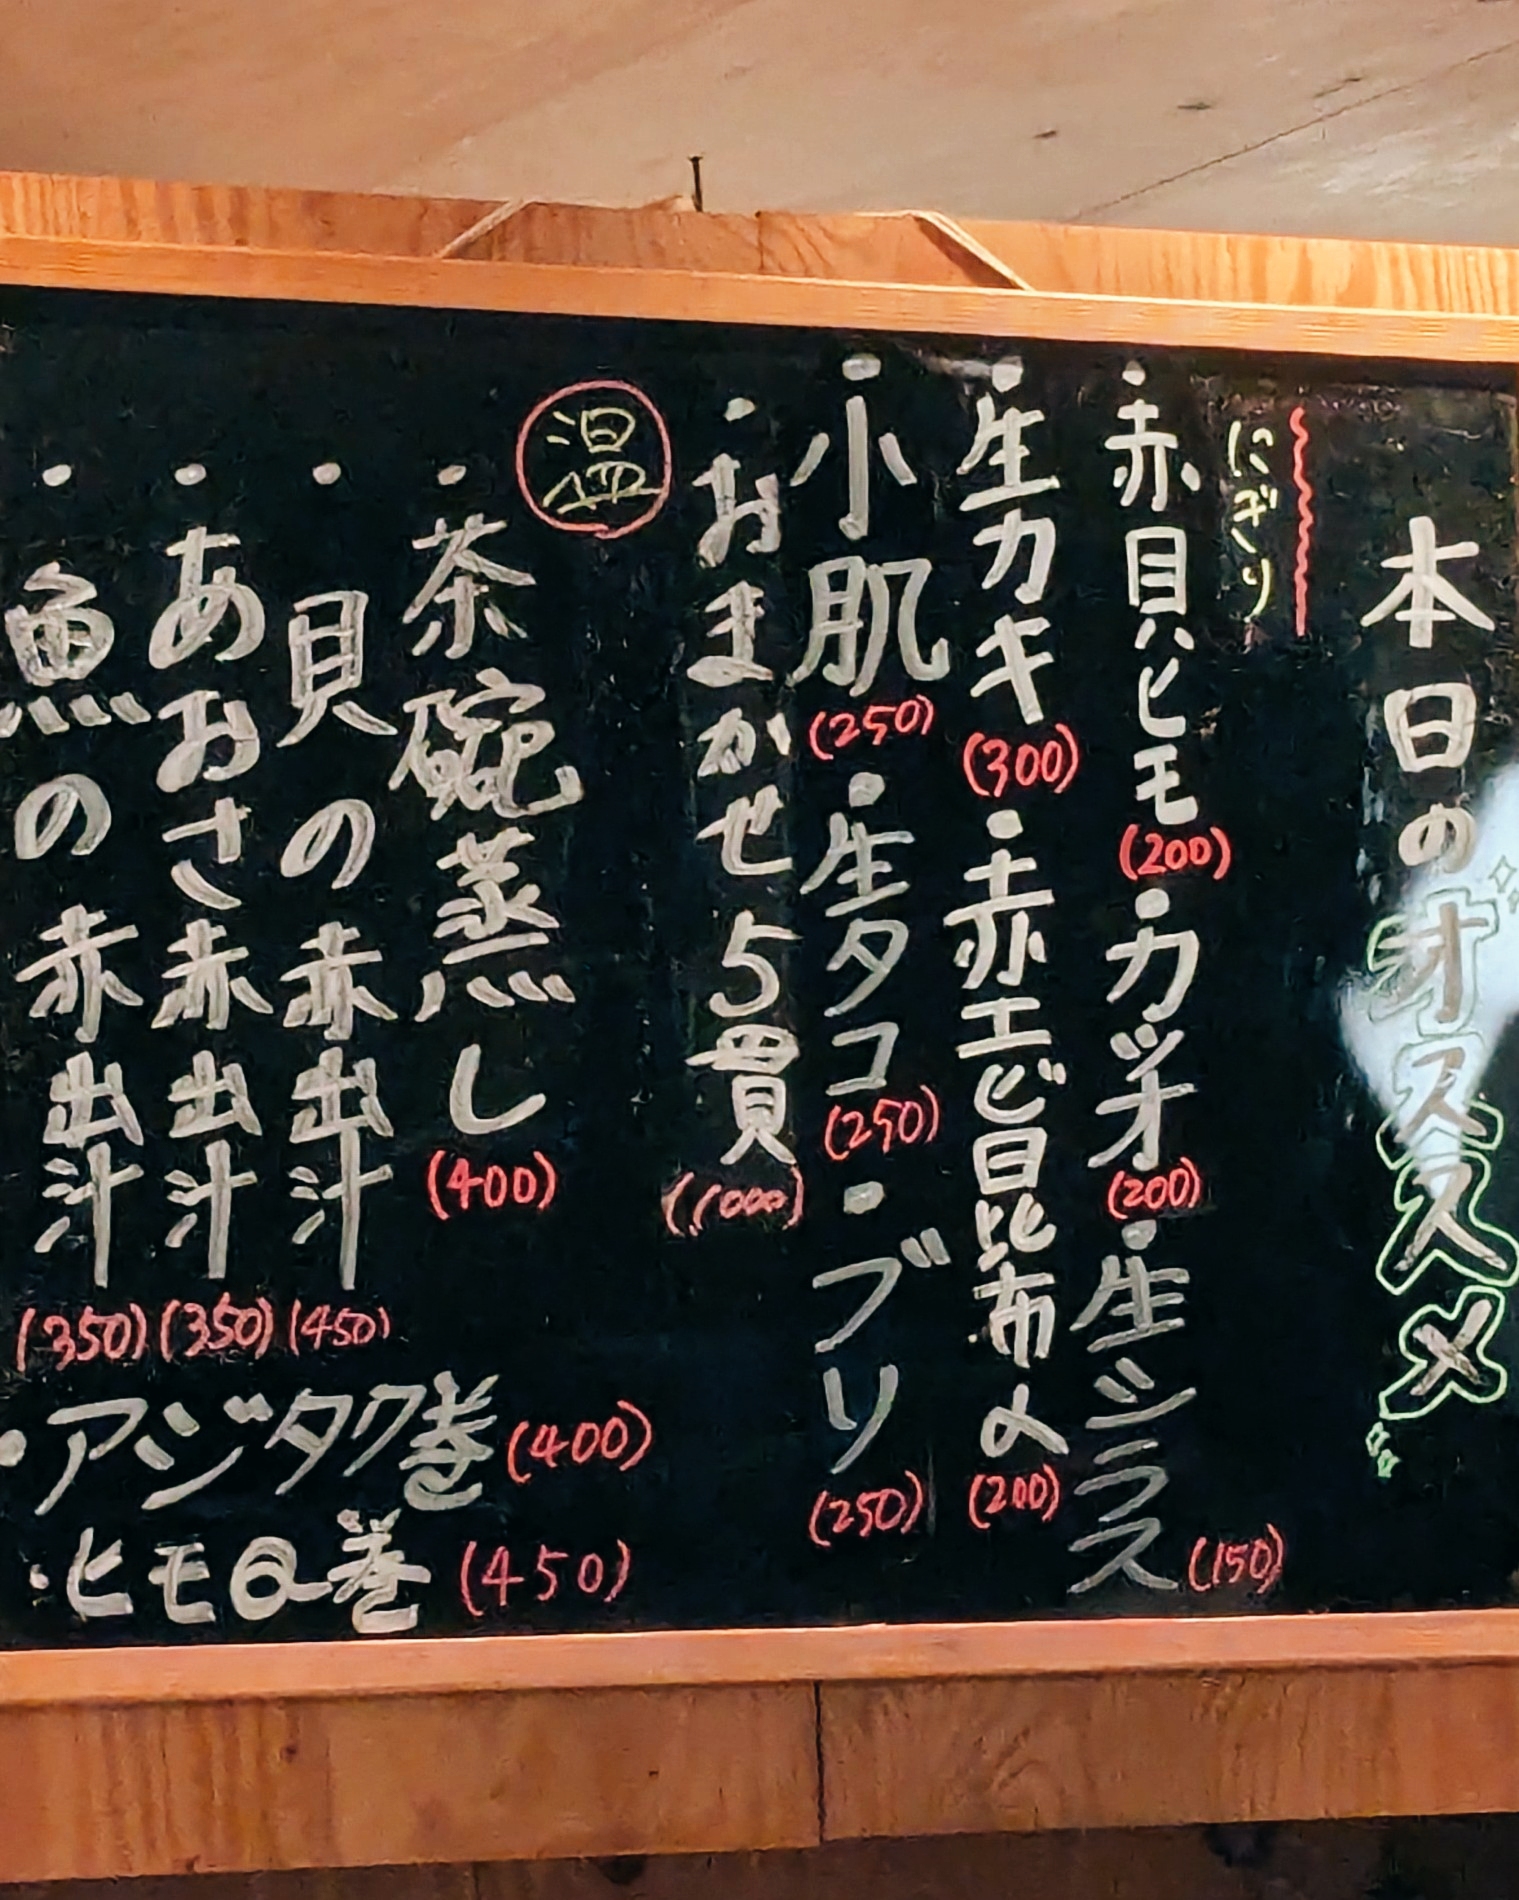 本日のオススメ
にぎり
・赤貝ヒモ(200)・カツオ(200)・生シラス(150)
・生カキ(300)・赤エビ昆布〆(200)
・小肌(250)・生タコ(250)・ブリ(250)
・おまかせ5貫(1000)
温
・茶碗蒸し(400)
・貝の赤出汁(450)
・あおさ赤出汁(350)
・魚の赤出汁(350)
・アジタク巻(400)
・ヒモQ巻(450)